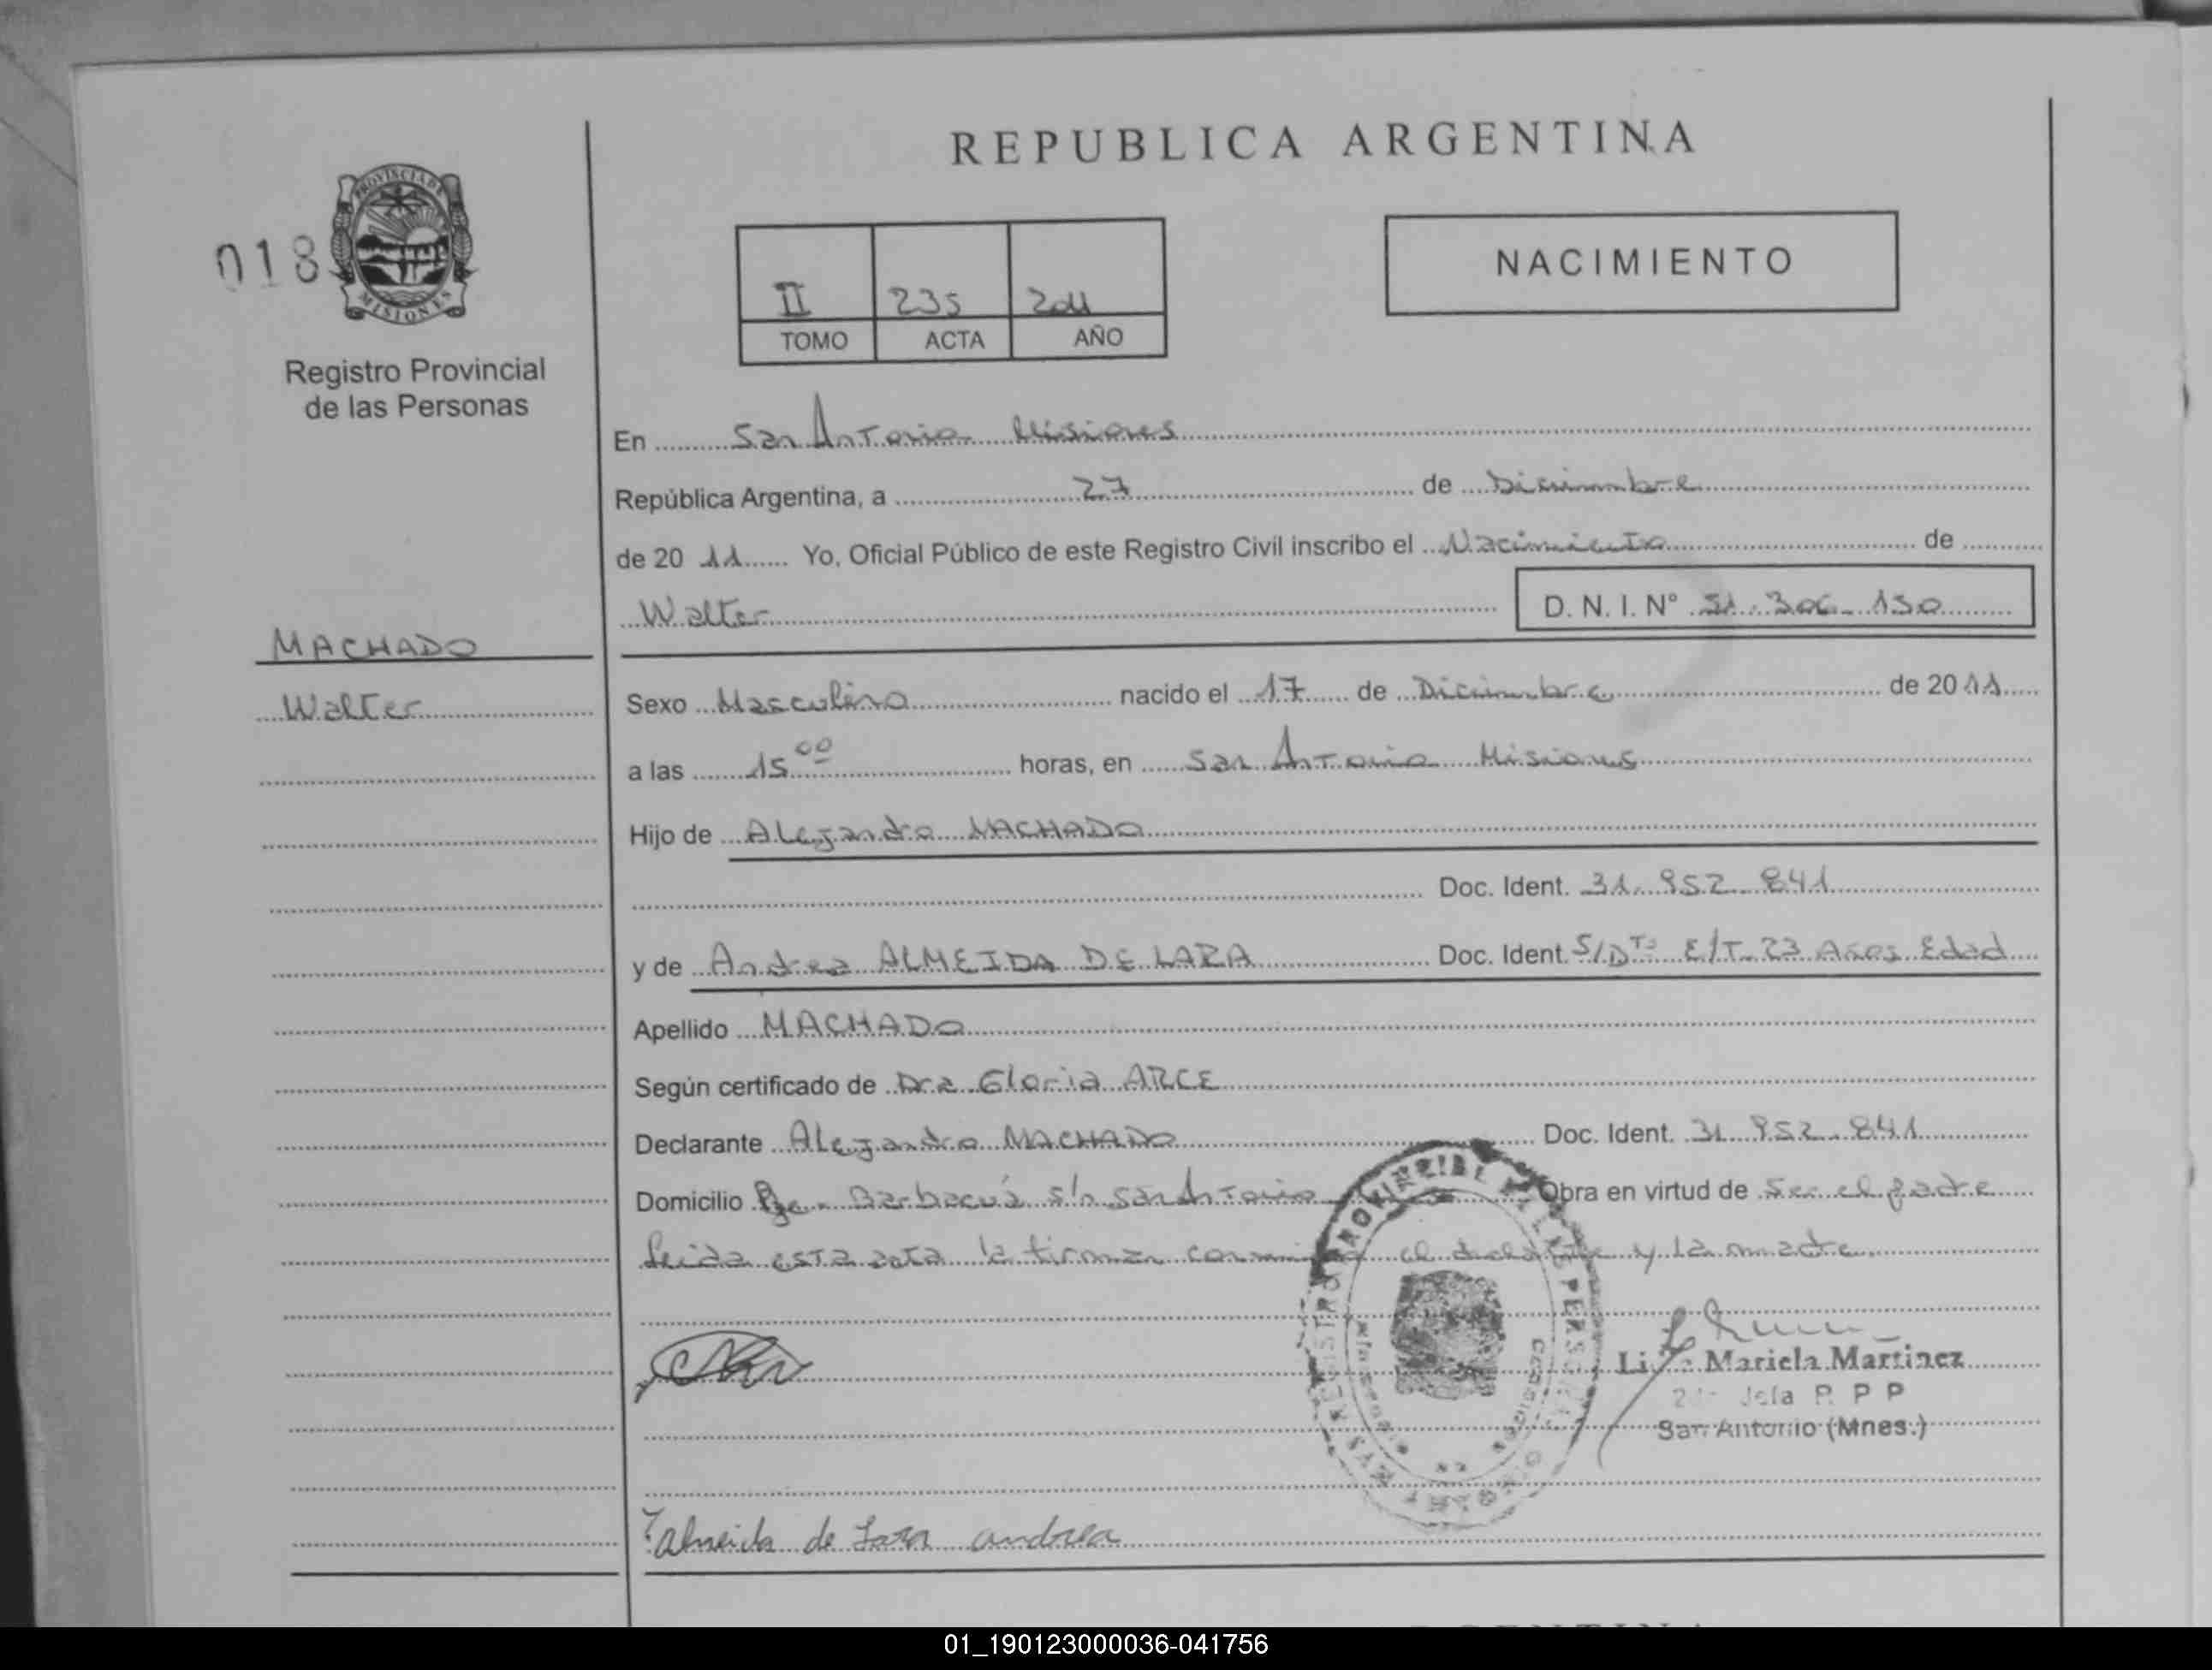 REPUBLICA ARGENTINA
018
PROVINCIA DE
MISIONES
Registro Provincial
de las Personas
II 235 2011
TOMO ACTA AÑO
NACIMIENTO
En San Antonio Misiones
República Argentina, a 27 de Diciembre
de 20 11 Yo, Oficial Público de este Registro Civil inscribo el Nacimiento de
Walter D. N. I. Nº 51.306.150
MACHADO
Walter
Sexo Masculino nacido el 17 de Diciembre de 2011
a las 15 00 horas, en San Antonio Misiones
Hijo de Alejandro MACHADO
Doc. Ident. 31.952.841
y de Andrea ALMEIDA DE LARA Doc. Ident. S/Dto E/T. 23 Años Edad
Apellido MACHADO
Según certificado de Dra Gloria ARCE
Declarante Alejandro MACHADO Doc. Ident. 31.952.841
Domicilio Barbacuá s/n San Antonio Obra en virtud de Ser el padre
Leida esta acta la firman conmigo el declarante y la madre
Mariela Martinez
Jefa R P P
San Antonio (Mnes.)
Almeida de Lara andrea
01_190123000036-041756